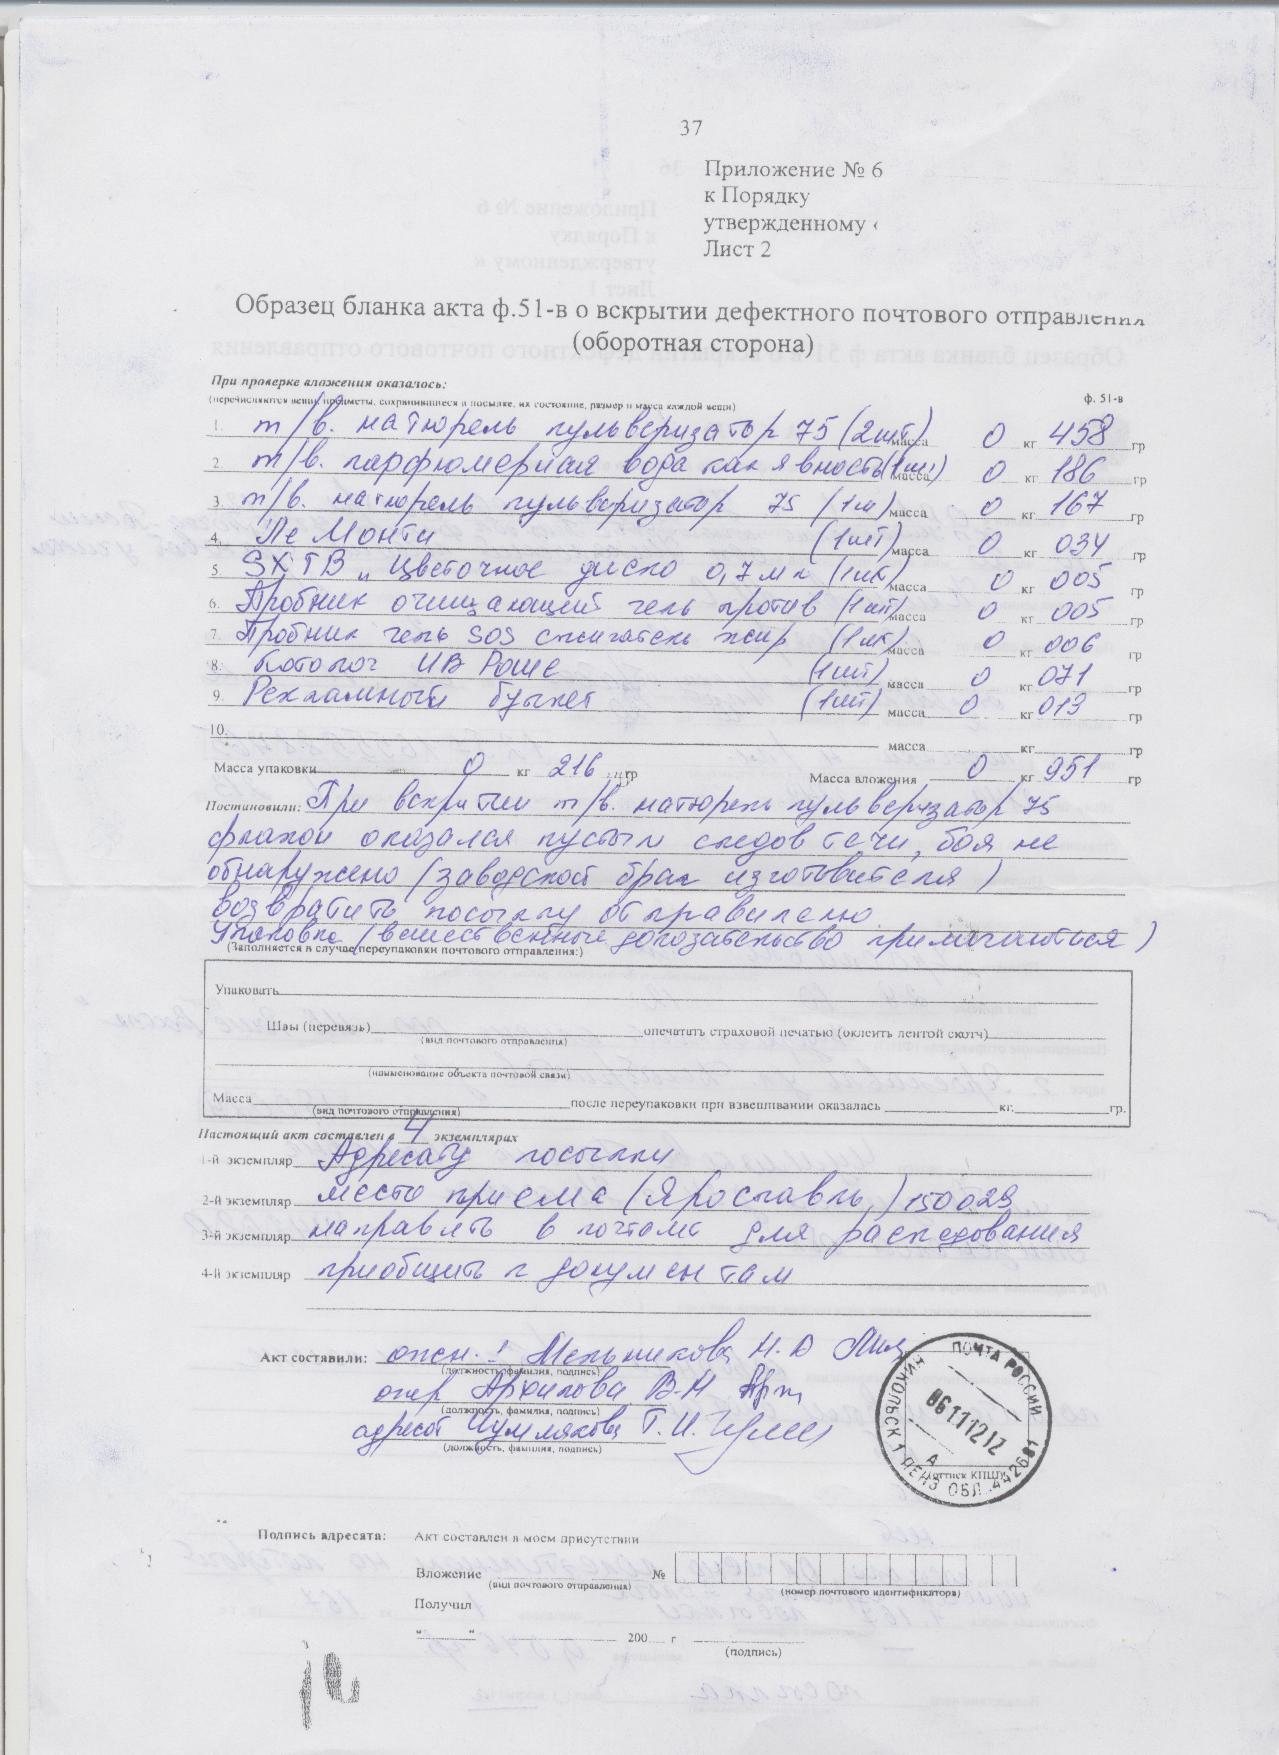 37
Приложение № 6
к Порядку
утвержденному
Лист 2
Образец бланка акта ф.51-в о вскрытии дефектного почтового отправления
(оборотная сторона)
При проверке вложения оказалось:
(перечисляются вещи, предметы, сохранившиеся в посылке, их состояние, размер и масса каждой вещи) ф. 51-в
1. т/в. натюрель пульверизатор 75 (2шт) масса 0 кг 458 гр
2. т/в. парфюмерная вода как явность (1шт) масса 0 кг 186 гр
3. т/в. натюрель пульверизатор 75 (1ш) масса 0 кг 167 гр
4. Ле Монти (1шт) масса 0 кг 034 гр
5. SXTB „ Цветочное диско 0,7 мл (1шт) масса 0 кг 005 гр
6. Пробник очищающий гель против (1шт) масса 0 кг 005 гр
7. Пробник гель SOS сжигатель жир (1шт) масса 0 кг 006 гр
8. Котолог ИВ Роше (1шт) масса 0 кг 071 гр
9. Рекламный буклет (1шт) масса 0 кг 013 гр
10. масса кг. гр
Масса упаковки 0 кг 216 гр Масса вложения 0 кг 951 гр
Постановили: При вскрытии т/в. натюрель пульверизатор 75
флакон оказался пустым следов течи, боя не
обнаружено (заводской брак изготовителя)
возвратить посылку отправителю
Упаковка (вещественные доказательство прилагаються)
(Заполняется в случае переупаковки почтового отправления:)
Упаковать
Швы (перевязь) опечатать страховой печатью (оклеить лентой скотч)
(вид почтового отправления)
(наименование объекта почтовой связи)
Масса после переупаковки при взвешивании оказалась кг. гр.
(вид почтового отправления)
Настоящий акт составлен в 4 экземплярах
1-й экземпляр Адресату посылки
2-й экземпляр место приема (Ярославль) 150029
3-й экземпляр направлть в почтамт для расследования
4-й экземпляр приобщить к документам
Акт составили: Мельникова Н.Ю
(должность, фамилия, подпись)
опер В-Н
(должность, фамилия, подпись)
адресат Т.И.
(должность, фамилия, подпись)
ПОЧТА РОССИИ
НИКОЛЬСК 1 ПЕНЗ ОБЛ. 442681
06111212
А
(оттиск КПШ)
Подпись адресата: Акт составлен в моем присутствии
Вложение №
(вид почтового отправления) (номер почтового идентификатора)
Получил
“ “ 200 г
(подпись)